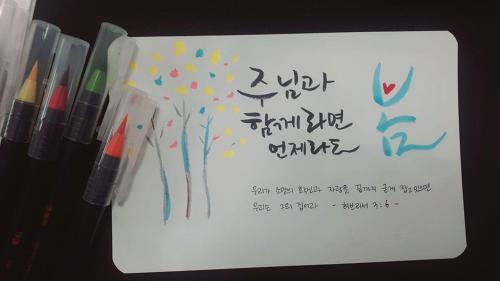 주님과
함께라면
언제라도
봄
우리가 소망의 확신과 자랑을 끝까지 굳게 잡고 있으면
우리는 그의 집이라 - 히브리서 3:6 -